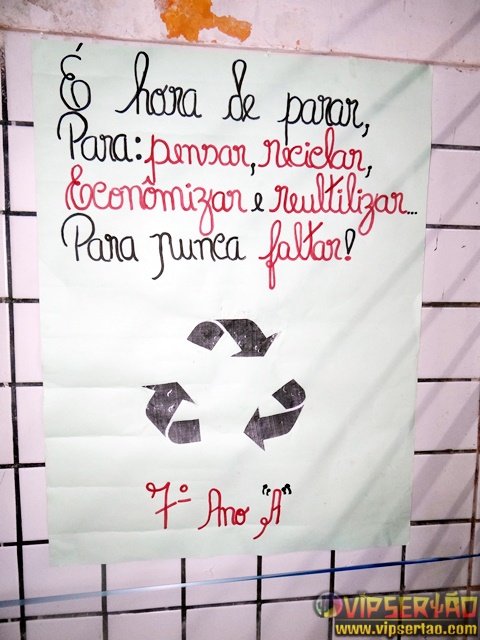 É hora de parar,
Para: pensar, reciclar,
Econômizar e reultilizar...
Para nunca faltar!
7º Ano "A"
VIPSERTÃO
www.vipsertao.com